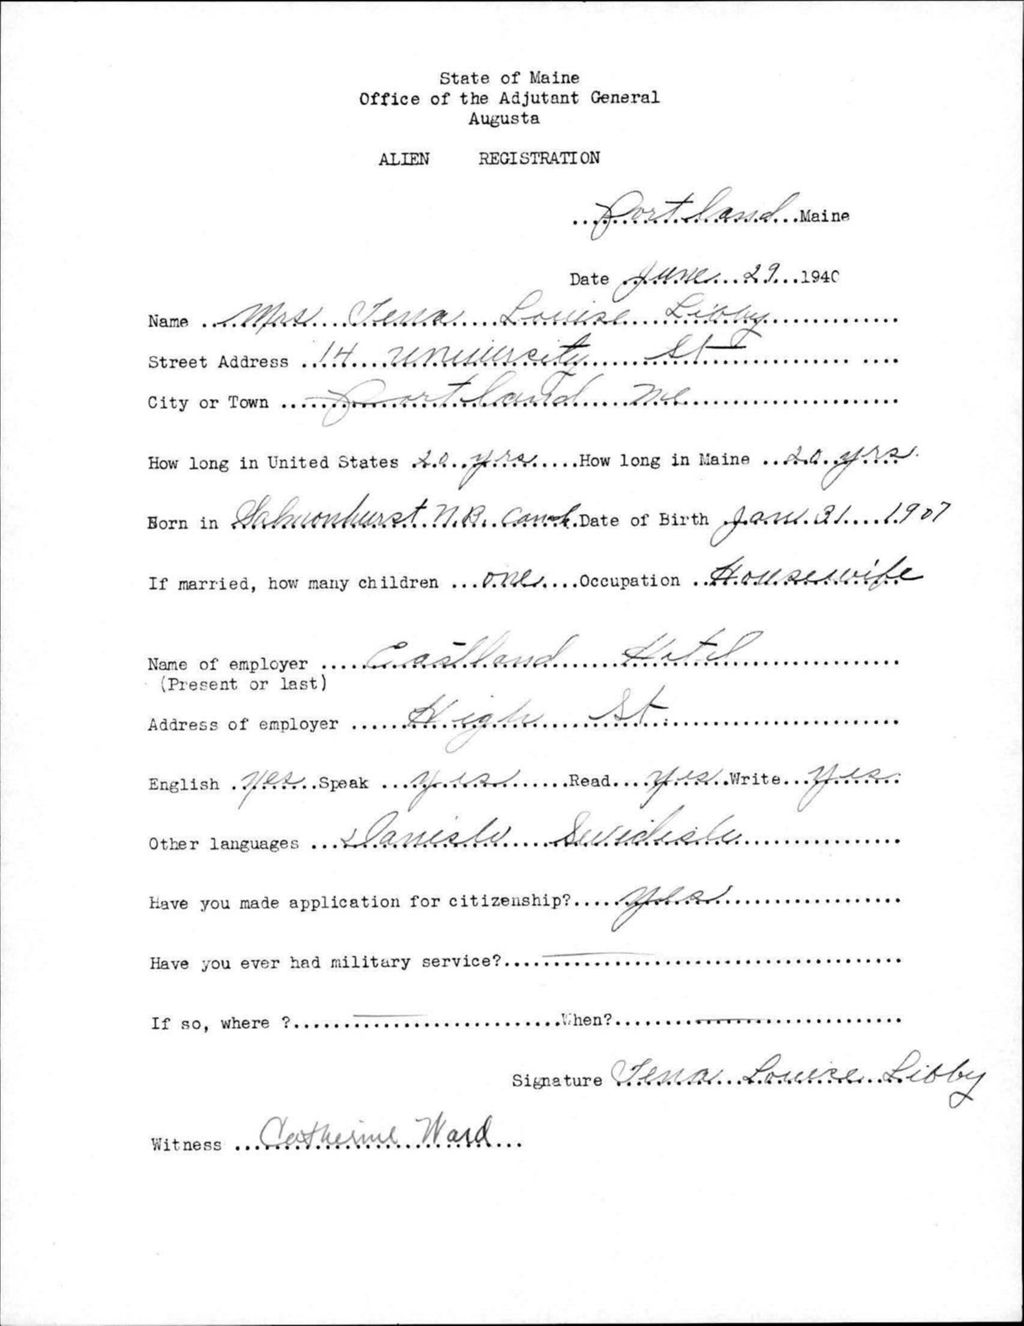 State of Maine
Office of the Adjutant General
Augusta
ALIEN REGISTRATION
Portland Maine
Date June 29 1940
Name Mrs Tena Louise Libby
Street Address 14 University St
City or Town Portland Me
How long in United States 20 yrs How long in Maine 20 yrs.
Born in Salmonhurst N.B. Can. Date of Birth Jan. 31 1907
If married, how many children one Occupation Housewife
Name of employer Eastland Hotel
(Present or last)
Address of employer High St.
English yes Speak yes Read yes Write yes
Other languages Danish Swedish
Have you made application for citizenship? yes
Have you ever had military service? —
If so, where ? — When? —
Signature Tena Louise Libby
Witness Catherine Ward